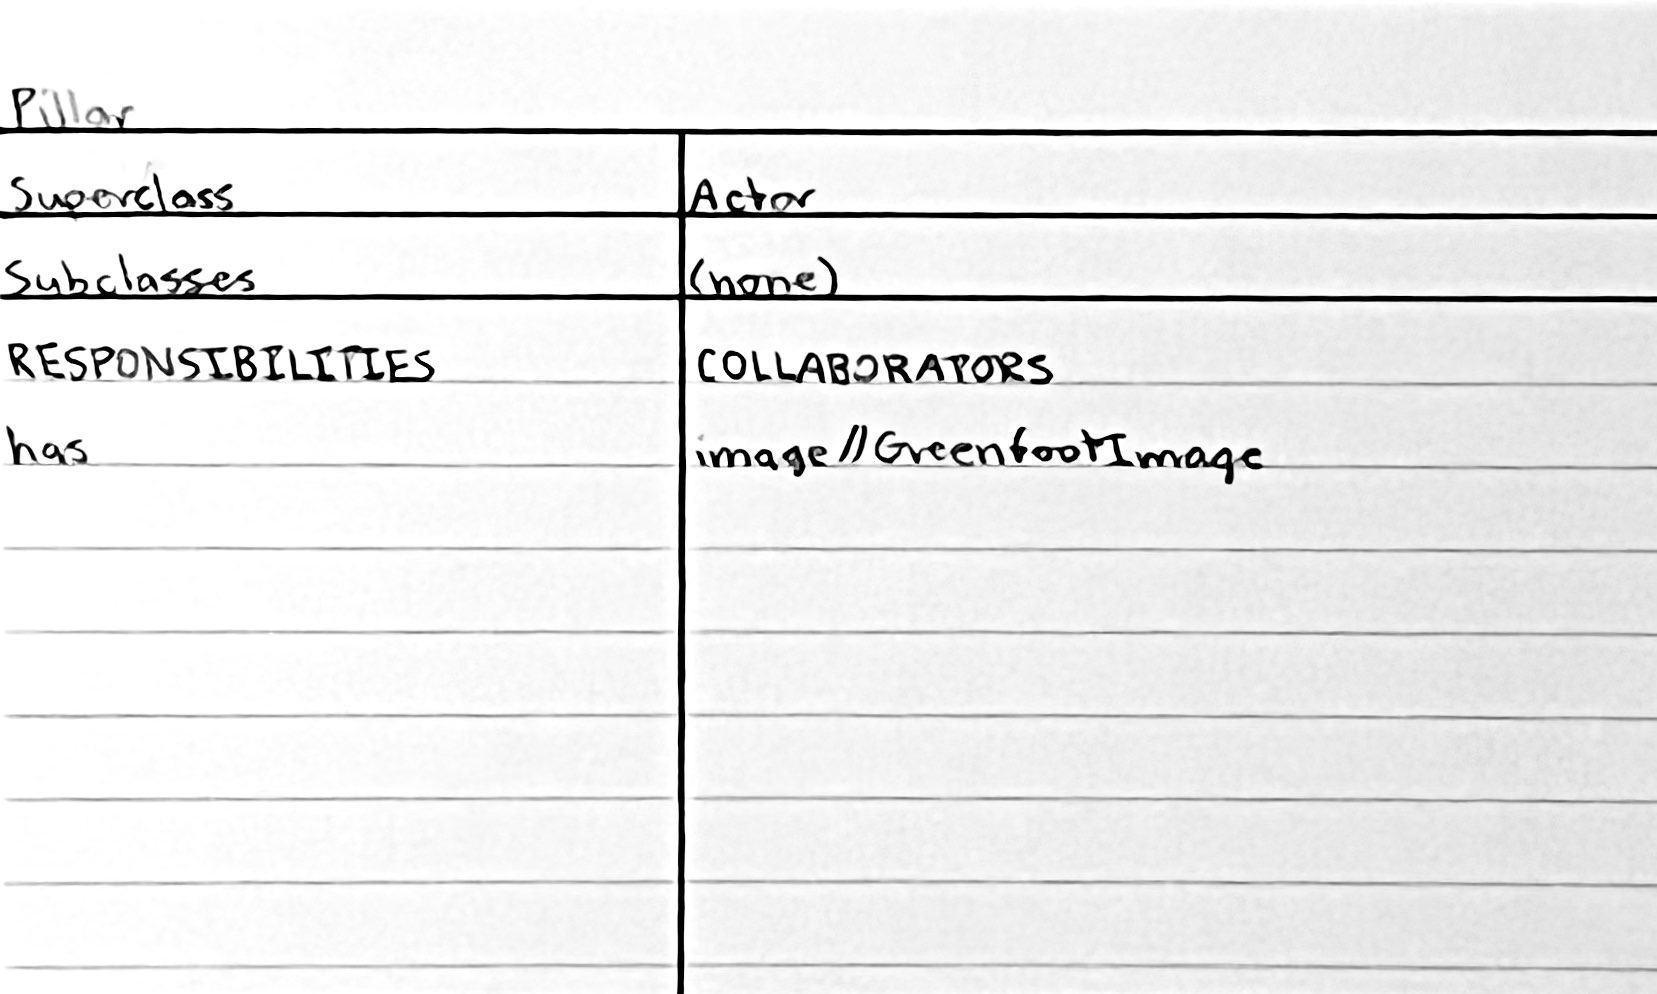 Pillar
Superclass Actor
Subclasses (none)
RESPONSIBILITIES COLLABORATORS
has image//GreenfootImage